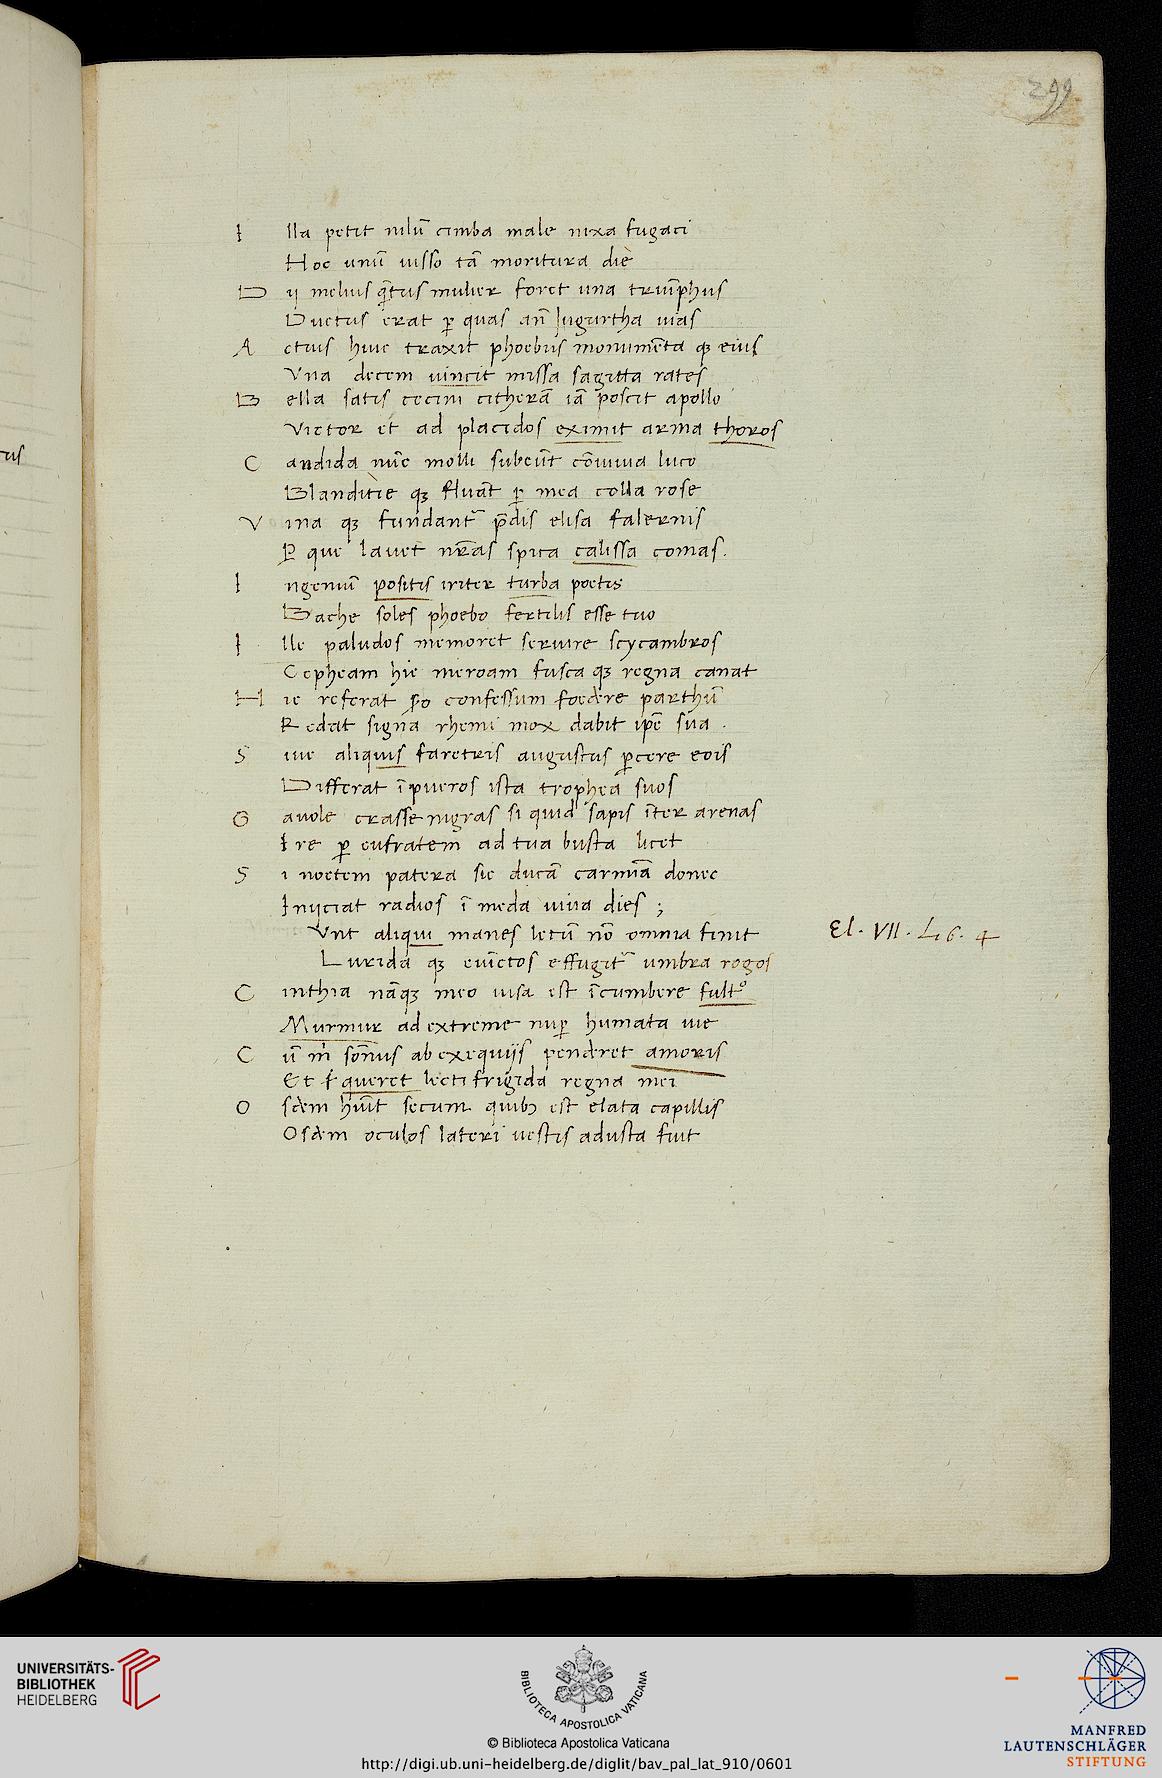 299
I lla petit nilū cimba male nixa fugaci
Hoc unū iusso tā moritura diē
D ij melius q̄tus mulier foret una triūphus
Ductus erat ꝑ quas an̄ Iugurtha uias
A ctius hinc traxit phoebus monumēta qꝫ eius
Vna decem uincit missa sagitta rates
B ella satis cecini citherā iā poscit apollo
Victor et ad placidos eximit arma thoros
C andida nūc molli subeūt cōuiuia luco
Blanditie qꝫ fluāt ꝑ mea colla rose
V ina qꝫ fundant᷑ p̄dis elisa falernis
P que lauet nr̄as spica calissa comas.
I ngeniū positis iriter turba poetis
Bache soles phoebo fertilis esse tuo
I lle paludos memoret seruire scycambros
Cepheam hic meroam fusca qꝫ regna canat
H ic referat ſo confessum foedere parthū
Redat signa rhemi mox dabit ip̄e sua.
S iue aliquis faretris augustus ꝑcere eois
Differat ī pueros ista trophea suos
G auole crasse nigras si quid sapis īter arenas
Ire ꝑ eufratem ad tua busta licet
S i noctem patera sic ducā carmīa donec
Iniiciat radios ī meda uina dies;
Vnt aliqui manes letū nō omnia finit
El. VII. Li6. 4
Lurida qꝫ euīctos effugit᷑ umbra rogos
C inthia nāqꝫ meo uisa est īcumbere fultº
Murmur ad extreme nuꝑ humata uie
C ū m̄ somn̄us ab exequijs penderet amoris
Et f queret lecti frigida regna mei
O sdem hūit secum quibꝫ est elata capillis
Osdem oculos lateri uestis adusta fuit
tus
UNIVERSITÄTS-
BIBLIOTHEK
HEIDELBERG
BIBLIOTECA APOSTOLICA VATICANA
© Biblioteca Apostolica Vaticana
http://digi.ub.uni-heidelberg.de/diglit/bav_pal_lat_910/0601
MANFRED
LAUTENSCHLÄGER
STIFTUNG